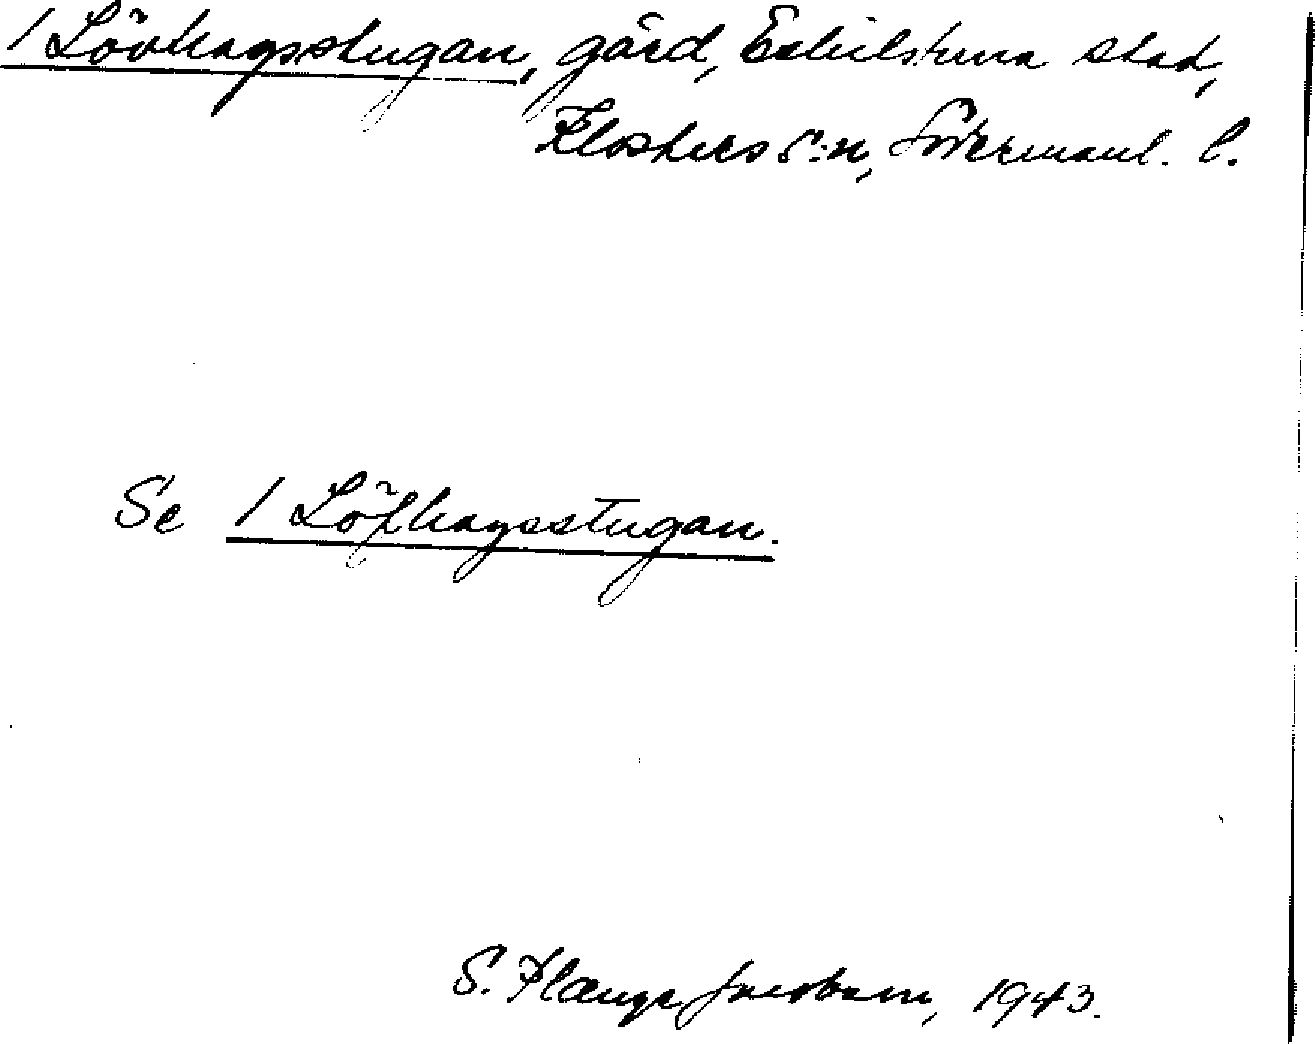 / Lövhagsstugan, gård, Eskilstuna stad,
Klosters s:n, Södermanl. l.
Se / Löfhagsstugan.
S. 1943.